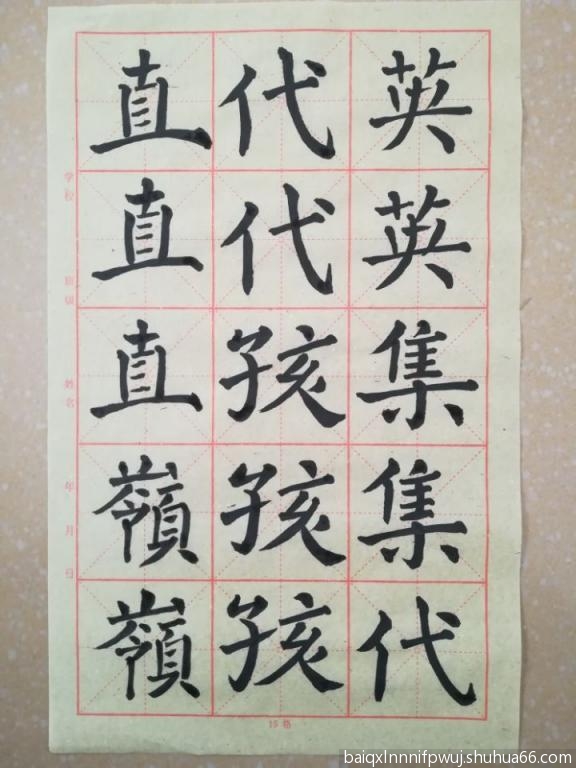 英英集集代
代代孩孩孩
直直直嶺嶺
学校 班级 姓名 年 月 日
15格
baiqxlnnnifpwuj.shuhua66.com